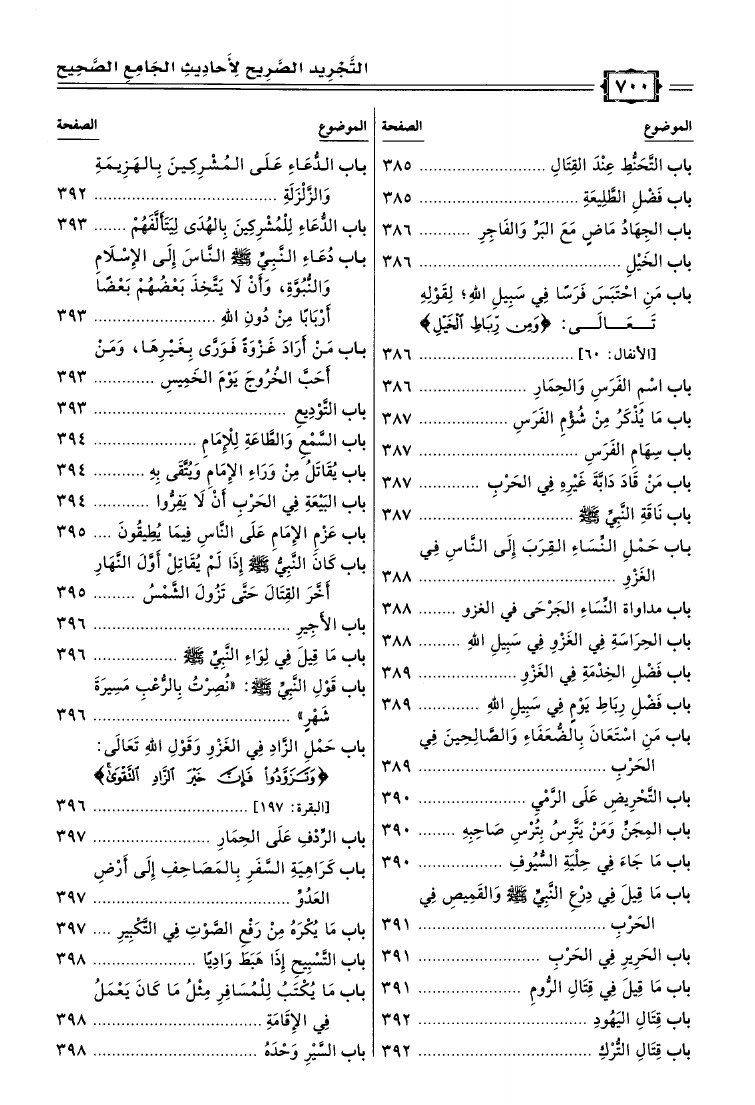 التَّجْرِيد الصَّرِيح لِأَحادِيثِ الجَامِعِ الصَّحِيحِ
٧٠٠
الموضوع الصفحة
باب التَّحَنُّطِ عِنْدَ القِتَالِ ............ ٣٨٥
باب فَضْلِ الطَّلِيعَةِ ............ ٣٨٥
باب الجِهَادُ مَاضٍ مَعَ البَرِّ وَالفَاجِرِ ............ ٣٨٦
باب الخَيْلِ ............ ٣٨٦
باب مَنِ احْتَبَسَ فَرَسًا فِي سَبِيلِ اللهِ؛ لِقَوْلِهِ
تَعَــالَــى: ﴿وَمِن رِّبَاطِ الْخَيْلِ﴾
[الأنفال: ٦٠] ............ ٣٨٦
باب اسْمِ الفَرَسِ وَالحِمَارِ ............ ٣٨٦
باب مَا يُذْكَرُ مِنْ شُؤْمِ الفَرَسِ ............ ٣٨٧
باب سِهَامِ الفَرَسِ ............ ٣٨٧
باب مَنْ قَادَ دَابَّةَ غَيْرِهِ فِي الحَرْبِ ............ ٣٨٧
باب نَاقَةِ النَّبِيِّ ﷺ ............ ٣٨٧
باب حَمْلِ النِّسَاءِ القِرَبَ إِلَى النَّاسِ فِي
الغَزْوِ ............ ٣٨٨
باب مداواة النِّسَاءِ الجَرْحَى في الغزو ........ ٣٨٨
باب الحِرَاسَةِ فِي الغَزْوِ فِي سَبِيلِ اللهِ ......... ٣٨٨
باب فَضْلِ الخِدْمَةِ فِي الغَزْوِ ............ ٣٨٩
باب فَضْلِ رِبَاطِ يَوْمٍ فِي سَبِيلِ اللهِ ............ ٣٨٩
باب مَنِ اسْتَعَانَ بِالضُّعَفَاءِ وَالصَّالِحِينَ فِي
الحَرْبِ ............ ٣٨٩
باب التَّحْرِيضِ عَلَى الرَّمْيِ ............ ٣٩٠
باب المِجَنِّ وَمَنْ يَتَّرِسُ بِتُرْسِ صَاحِبِهِ ........ ٣٩٠
باب مَا جَاءَ فِي حِلْيَةِ السُّيُوفِ ............ ٣٩٠
باب مَا قِيلَ فِي دِرْعِ النَّبِيِّ ﷺ وَالقَمِيصِ فِي
الحَرْبِ ............ ٣٩١
باب الحَرِيرِ فِي الحَرْبِ ............ ٣٩١
باب مَا قِيلَ فِي قِتَالِ الرُّومِ ............ ٣٩١
باب قِتَالِ اليَهُودِ ............ ٣٩٢
باب قِتَالِ التُّرْكِ ............ ٣٩٢
الموضوع الصفحة
باب الدُّعَاءِ عَلَى المُشْرِكِينَ بِالهَزِيمَةِ
وَالزَّلْزَلَةِ ............ ٣٩٢
باب الدُّعَاءِ لِلْمُشْرِكِينَ بِالهُدَى لِيَتَأَلَّفَهُمْ ....... ٣٩٣
باب دُعَاءِ النَّبِيِّ ﷺ النَّاسَ إِلَى الإِسْلَامِ
وَالنُّبُوَّةِ، وَأَنْ لَا يَتَّخِذَ بَعْضُهُمْ بَعْضًا
أَرْبَابًا مِنْ دُونِ اللهِ ............ ٣٩٣
باب مَنْ أَرَادَ غَزْوَةً فَوَرَّى بِغَيْرِهَا، وَمَنْ
أَحَبَّ الخُرُوجَ يَوْمَ الخَمِيسِ ............ ٣٩٣
باب التَّوْدِيعِ ............ ٣٩٣
باب السَّمْعِ وَالطَّاعَةِ لِلْإِمَامِ ............ ٣٩٤
باب يُقَاتَلُ مِنْ وَرَاءِ الإِمَامِ وَيُتَّقَى بِهِ ............ ٣٩٤
باب البَيْعَةِ فِي الحَرْبِ أَنْ لَا يَفِرُّوا ............ ٣٩٤
باب عَزْمِ الإِمَامِ عَلَى النَّاسِ فِيمَا يُطِيقُونَ .... ٣٩٥
باب كَانَ النَّبِيُّ ﷺ إِذَا لَمْ يُقَاتِلْ أَوَّلَ النَّهَارِ
أَخَّرَ القِتَالَ حَتَّى تَزُولَ الشَّمْسُ ......... ٣٩٥
باب الأَجِيرِ ............ ٣٩٦
باب مَا قِيلَ فِي لِوَاءِ النَّبِيِّ ﷺ ............ ٣٩٦
باب قَوْلِ النَّبِيِّ ﷺ: «نُصِرْتُ بِالرُّعْبِ مَسِيرَةَ
شَهْرٍ» ............ ٣٩٦
باب حَمْلِ الزَّادِ فِي الغَزْوِ وَقَوْلِ اللهِ تَعَالَى:
﴿وَتَزَوَّدُواْ فَإِنَّ خَيْرَ الزَّادِ التَّقْوَىٰ﴾
[البقرة: ١٩٧] ............ ٣٩٦
باب الرِّدْفِ عَلَى الحِمَارِ ............ ٣٩٧
باب كَرَاهِيَةِ السَّفَرِ بِالمَصَاحِفِ إِلَى أَرْضِ
العَدُوِّ ............ ٣٩٧
باب مَا يُكْرَهُ مِنْ رَفْعِ الصَّوْتِ فِي التَّكْبِيرِ .... ٣٩٧
باب التَّسْبِيحِ إِذَا هَبَطَ وَادِيًا ............ ٣٩٨
باب مَا يُكْتَبُ لِلْمُسَافِرِ مِثْلُ مَا كَانَ يَعْمَلُ
فِي الإِقَامَةِ ............ ٣٩٨
باب السَّيْرِ وَحْدَهُ ............ ٣٩٨